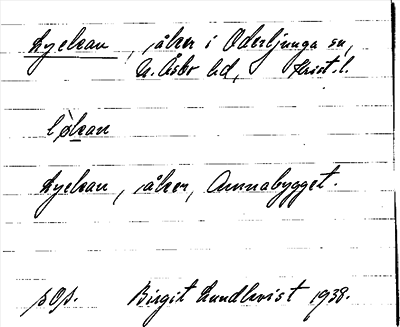 Lyckan, åker i Oderljunga sn,
N. Åsbo hd, Krist. l.
lø̀kan
Lyckan, åker, Annabygget.
pOp. Birgit Lundkvist 1938.